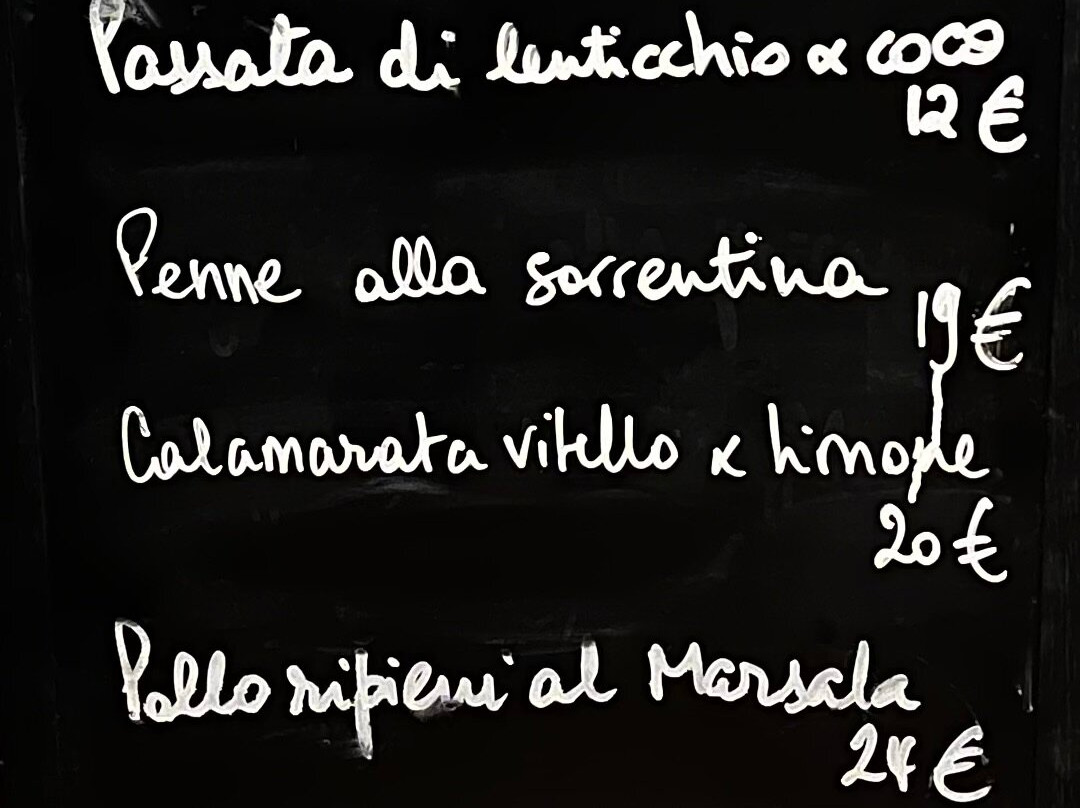 Passata di lenticchio & coco
12 €
Penne alla sorrentina
19 €
Calamarata vitello & limone
20 €
Pollo ripieni al Marsala
24 €